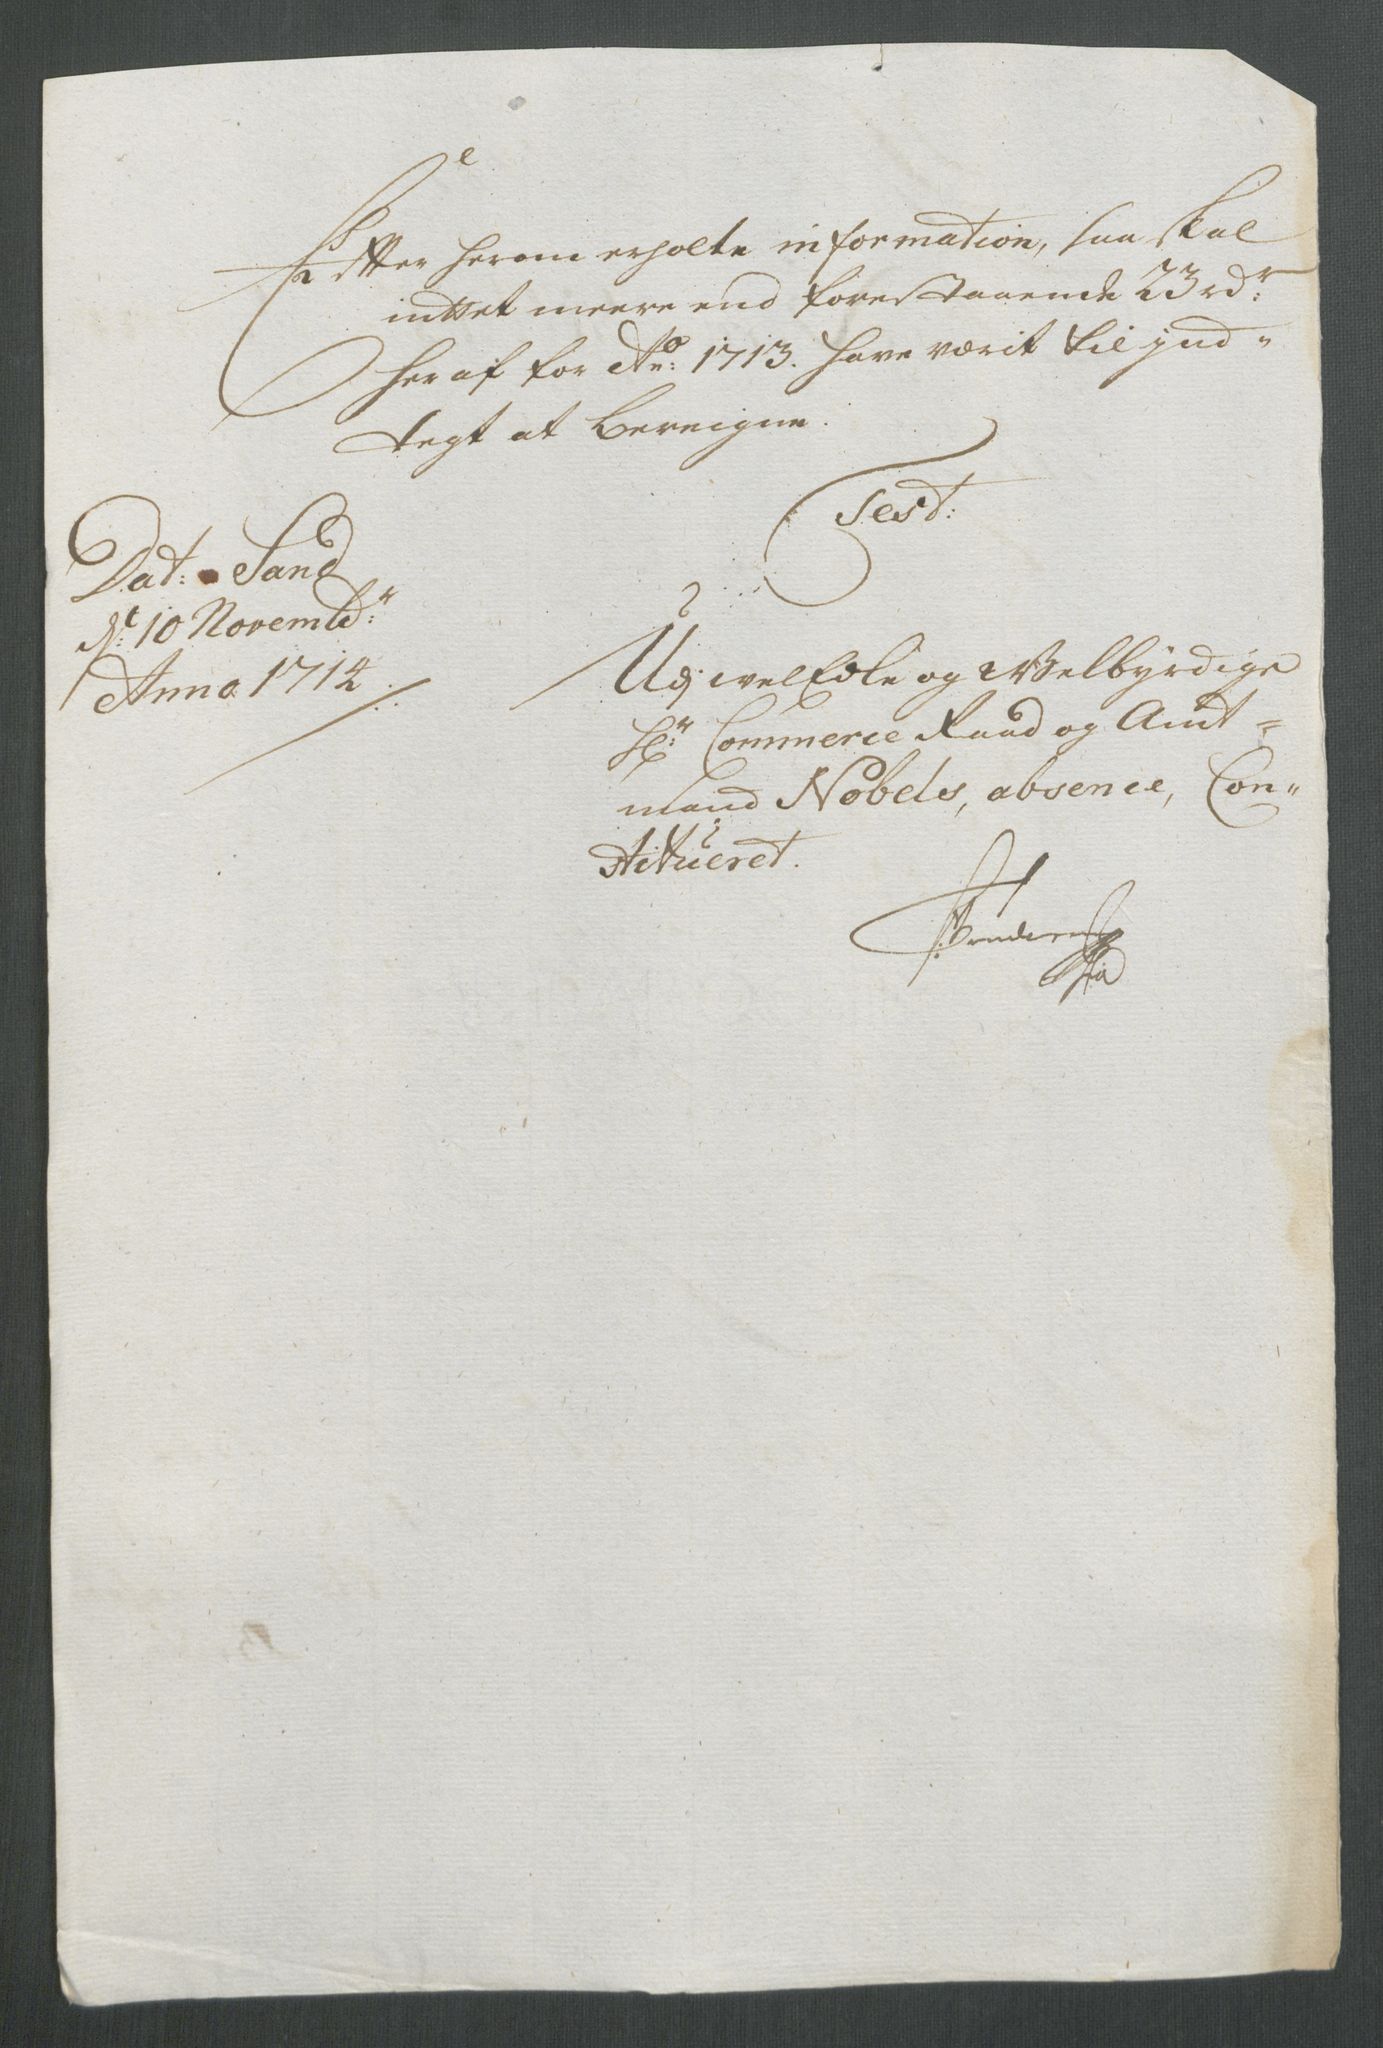 Effter herom erholte information, saa skal
inttet meere end forestaaende 23 rdr:
her af for Ao: 1713. have værit til jnd-
tegt at bereigne.
Test:
Dat: Sand
d: 10 Novembr:
Anno 1714
Udj welEdle og Welbÿrdige
Hr: Commerce Raad og Amt-
mand Nobels, absence, Con-
stitueret.